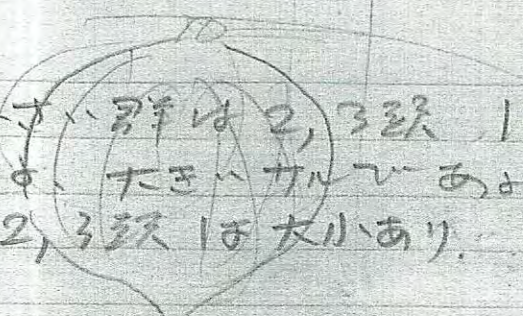 さい群は2,3頭 1
す、大きいサルであ
2,3頭は大小あり.